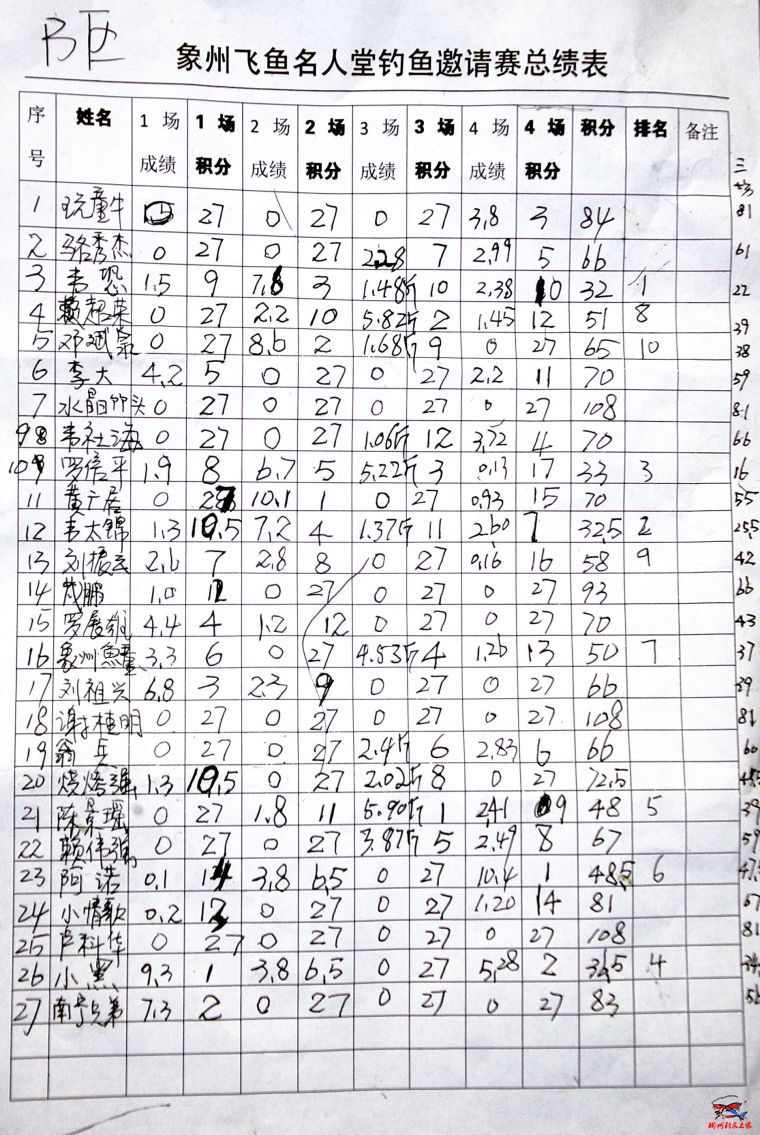 B区
象州飞鱼名人堂钓鱼邀请赛总绩表
序号 姓名 1场成绩 1场积分 2场成绩 2场积分 3场成绩 3场积分 4场成绩 4场积分 积分 排名 备注 三场
1 玩童牛 27 0 27 0 27 3.8 3 84 81
2 骆秀杰 0 27 0 27 2.28 7 2.99 5 66 61
3 韦恐 1.5 9 7.8 3 1.48斤 10 2.38 10 32 1 22
4 赖超荣 0 27 2.2 10 5.82斤 2 1.45 12 51 8 39
5 邓斌 0 27 8.6 2 1.68斤 9 0 27 65 10 38
6 李大 4.2 5 0 27 0 27 2.2 11 70 59
7 水晶 头 0 27 0 27 0 27 0 27 108 81
98 韦社海 0 27 0 27 1.06斤 12 3.72 4 70 66
109 罗信平 1.9 8 6.7 5 5.22斤 3 0.13 17 33 3 16
11 黄广居 0 10.1 1 0 27 0.93 15 70 55
12 韦太锦 1.3 10.5 7.2 4 1.37斤 11 2.60 7 32.5 2 25.5
13 刘振 2.6 7 2.8 8 0 27 0.16 16 58 9 42
14 鹏 1.0 12 0 27 0 27 0 27 93 66
15 罗展雄 4.4 4 1.2 12 0 27 0 27 70 43
16 象州鱼童 3.3 6 0 27 4.53斤 4 1.26 13 50 7 37
17 刘祖兴 6.8 3 2.3 9 0 27 0 27 66 39
18 谢桂明 0 27 0 27 0 27 0 27 108 81
19 翁兵 0 27 0 27 2.4斤 6 2.83 6 66 60
20 烧烤强 1.3 10.5 0 27 2.02斤 8 0 27 72.5
21 陈景瑶 0 27 1.8 11 5.90斤 1 2.41 9 48 5 39
22 赖伟强 0 27 0 27 3.87斤 5 2.49 8 67 59
23 阿诺 0.1 14 3.8 6.5 0 27 10.4 1 48.5 6 47.5
24 小情歌 0.2 13 0 27 0 27 1.20 14 81 67
25 卢科华 0 27 0 27 0 27 0 27 108 81
26 小黑 9.3 1 3.8 6.5 0 27 5.28 2 4
27 南宁兄弟 7.3 2 0 27 0 27 0 27 83 56
柳州钓鱼之家